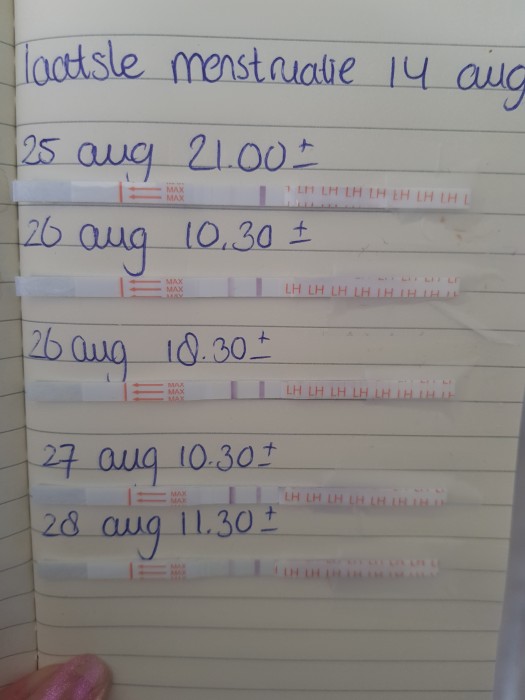 laatste menstruatie 14 aug
25 aug 21.00 ±
MAX
MAX
LH LH LH LH LH LH LH L
26 aug 10.30 ±
MAX
MAX
MAX
LH LH LH LH LH LH LH LH
26 aug 18.30 ±
MAX
MAX
MAX
LH LH LH LH LH LH LH LH
27 aug 10.30 ±
MAX
MAX
LH LH LH LH LH LH LH LH
28 aug 11.30 ±
MAX
MAX
MAX
LH LH LH LH LH LH LH